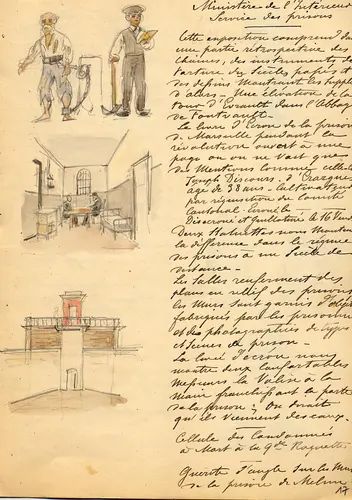 Ministère de l'Intérieur
Service des prisons
Cette exposition comprend dans
une partie rétrospective des
chaines, des instruments de
torture des siècles passés et
des dessins montrant les supplices
d'alors - Une élévation de la
Tour d'Evrault dans l'Abbaye
de Fontevrault.
Le livre d'Ecrou de la prison
de Marseille pendant la
révolution ouvert à une
page ou on ne voit que
des mentions comme celle-ci
Joseph Discours, d'
age de 38 ans - cultivateur
par réquisition du Comité
Cantonal - Ecroué le
Désecroué et guillotiné le 16
Deux statuettes nous montrent
la différence dans le régime
des prisons à un siècle de
distance.
Les salles renferment des
plans en relief des prisons
les murs sont garnis d'objets
fabriqués par les prisonniers
et des photographies de types
et scènes de prison -
La levée d'écrou nous
montre deux confortables
Messieurs la Valise à la
main franchissant la porte
de la prison; On dirait
qu'ils viennent des eaux.
Cellule des Condamnés
à Mort à la Gde Roquette
Guérite d'angle sur les Murs
de la prison de Melun